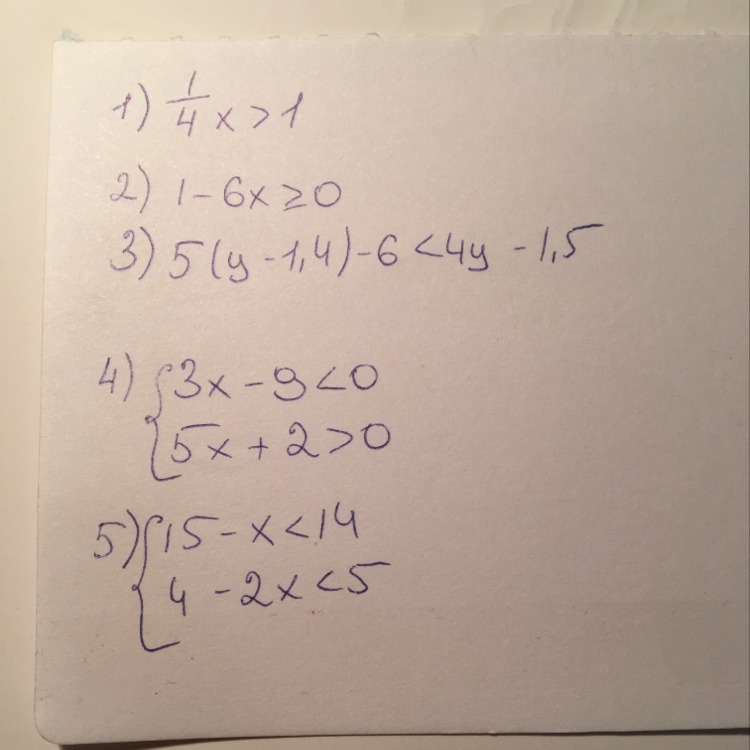 1) 1/4 x > 1
2) 1 - 6x ≥ 0
3) 5(y - 1,4) - 6 < 4y - 1,5
4) { 3x - 9 < 0
5x + 2 > 0
5) { 15 - x < 14
4 - 2x < 5